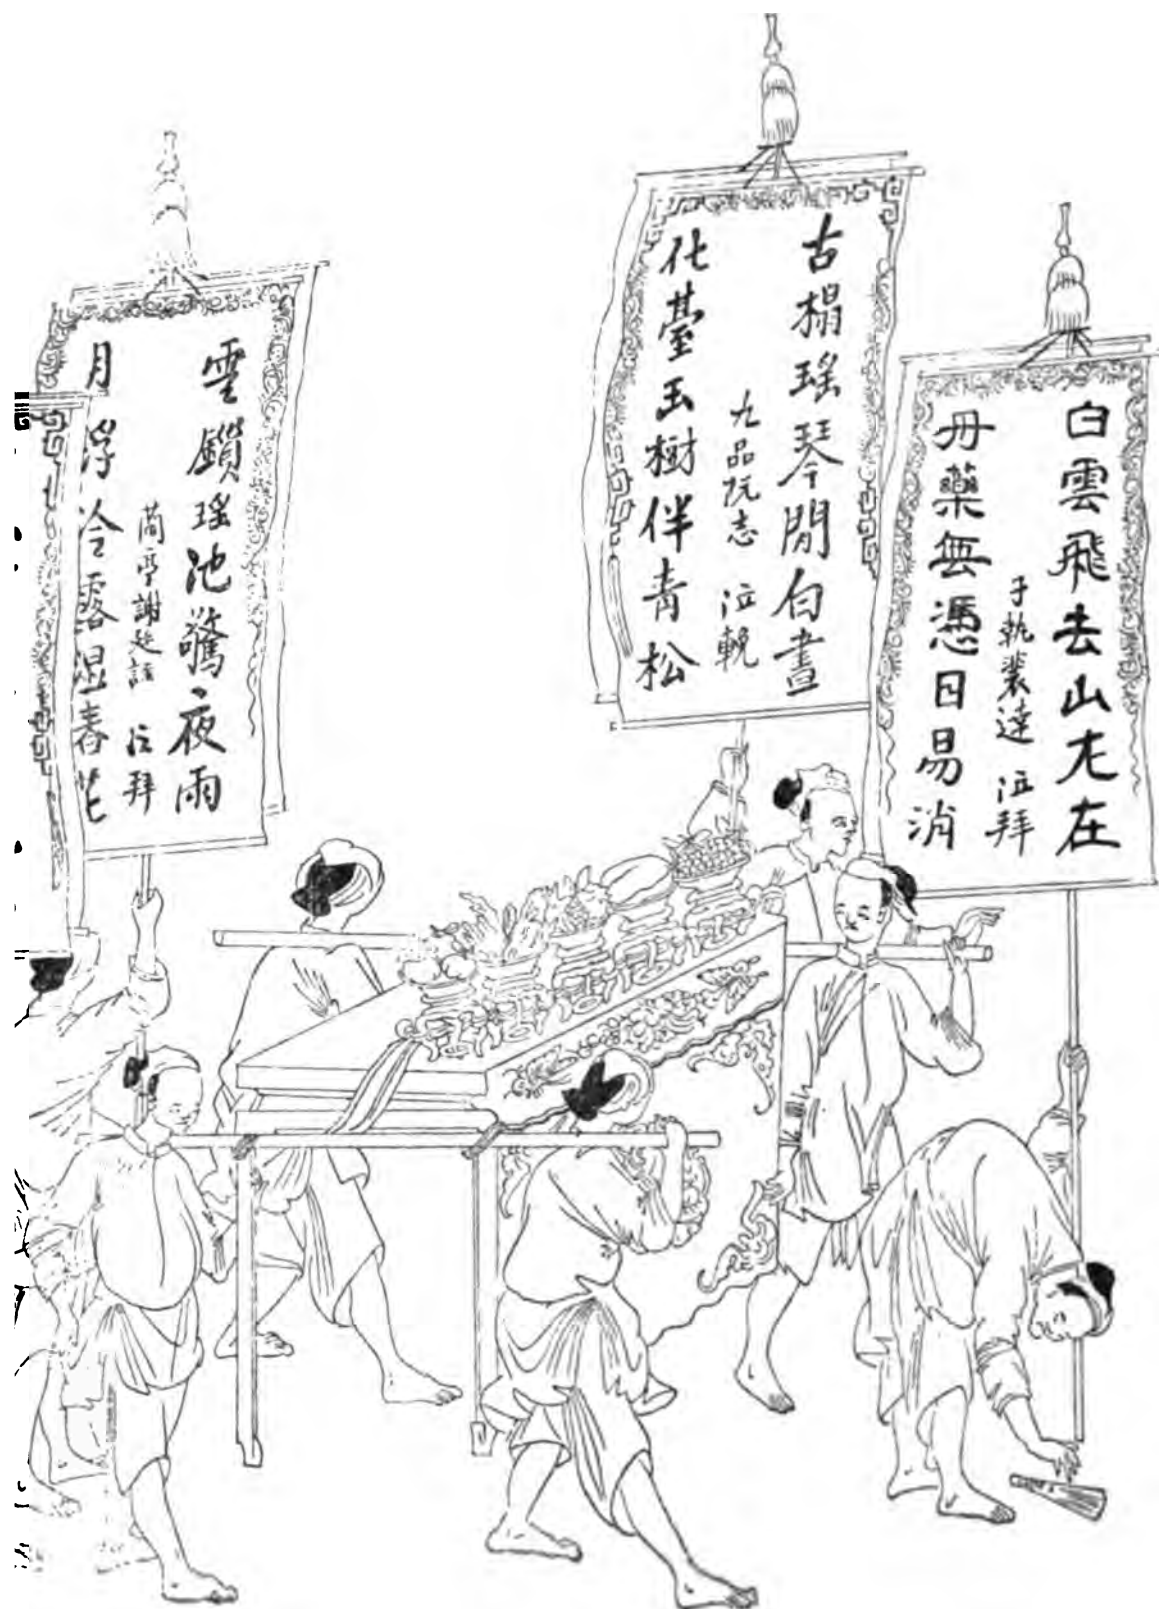 白雲飛去山尤在
于執裴達 泣拜
丹藥無憑日易消
古榻瑤琴閒白晝
九品阮志 泣輓
化臺玉樹伴青松
雲鎖瑤池驚夜雨
亭謝廷 泣拜
月浮冷露湿春花